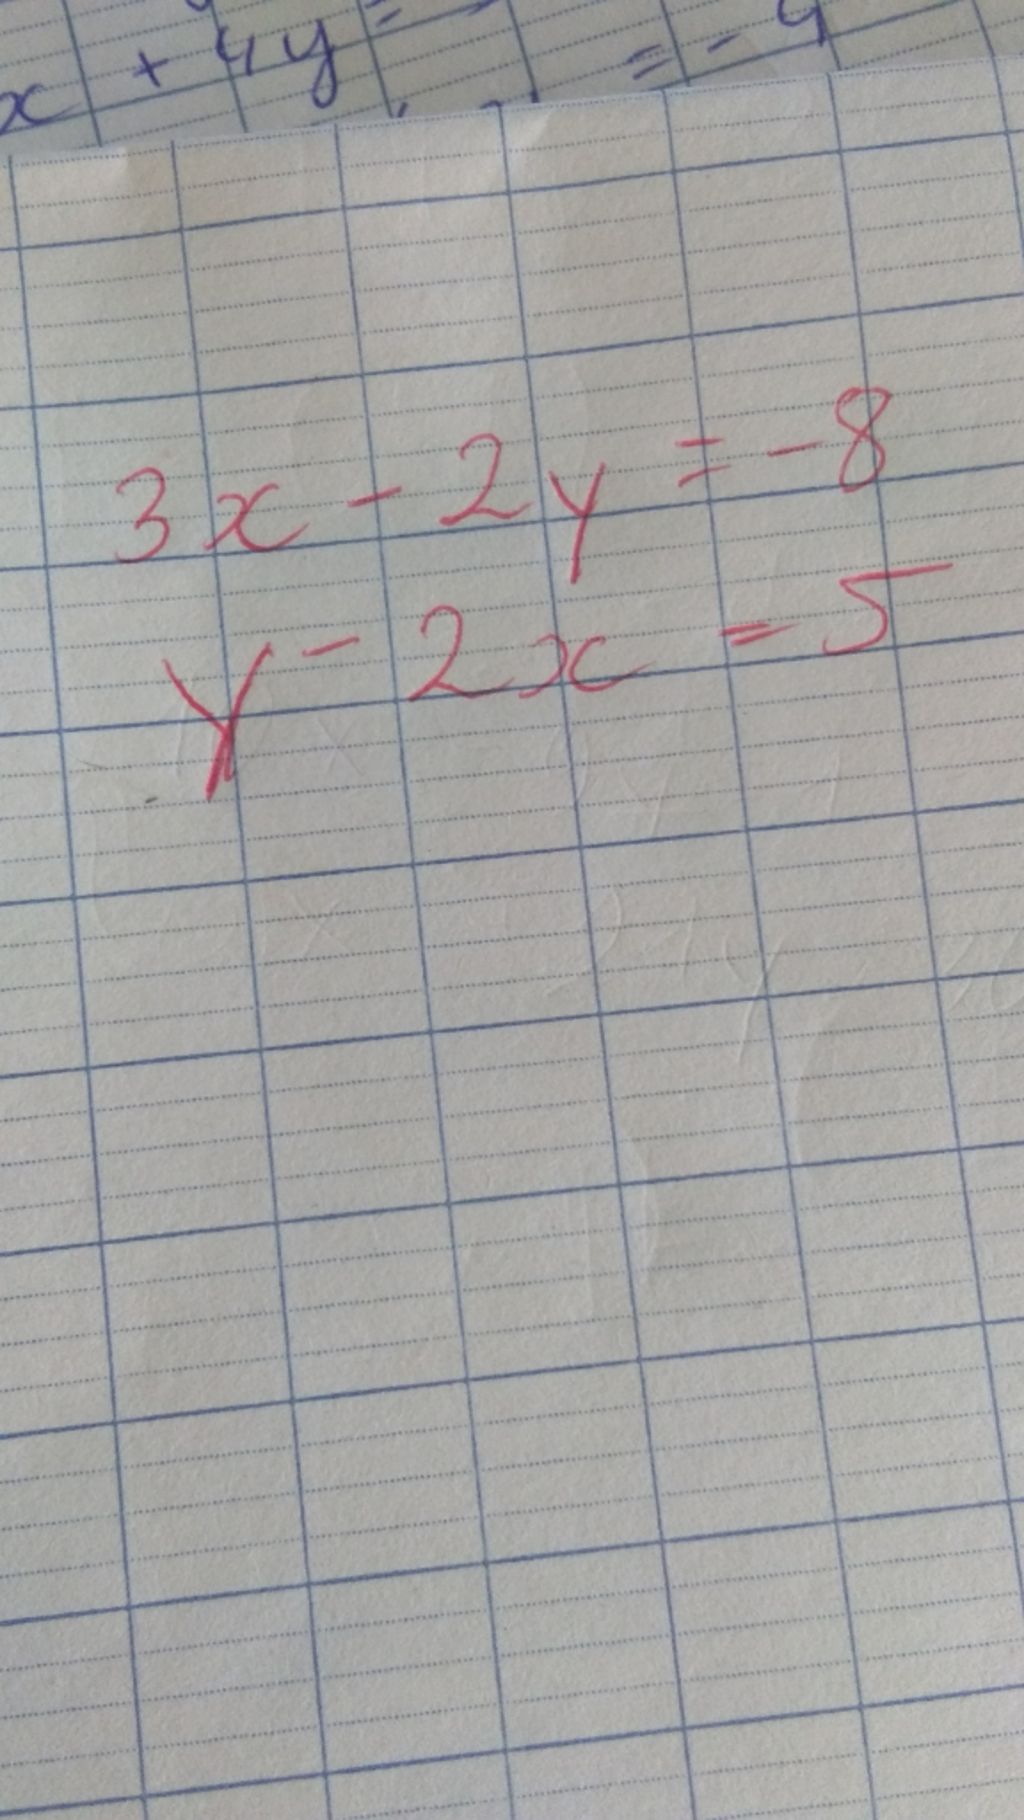 x + 4y =
= - 4
3x - 2y = -8
y - 2x = 5